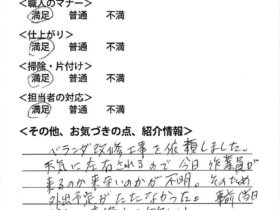 <職人のマナー>
満足 普通 不満
<仕上がり>
満足 普通 不満
<掃除・片付け>
満足 普通 不満
<担当者の対応>
満足 普通 不満
<その他、お気づきの点、紹介情報>
ベランダ改修工事を依頼しました。
天気に左右されるので今日作業員が
来るのか来ないのかが不明。そのため
外出予定がたたなかった。事前当日